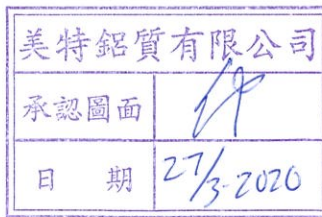 美特鋁質有限公司
承認圖面
日 期 27/3-2020